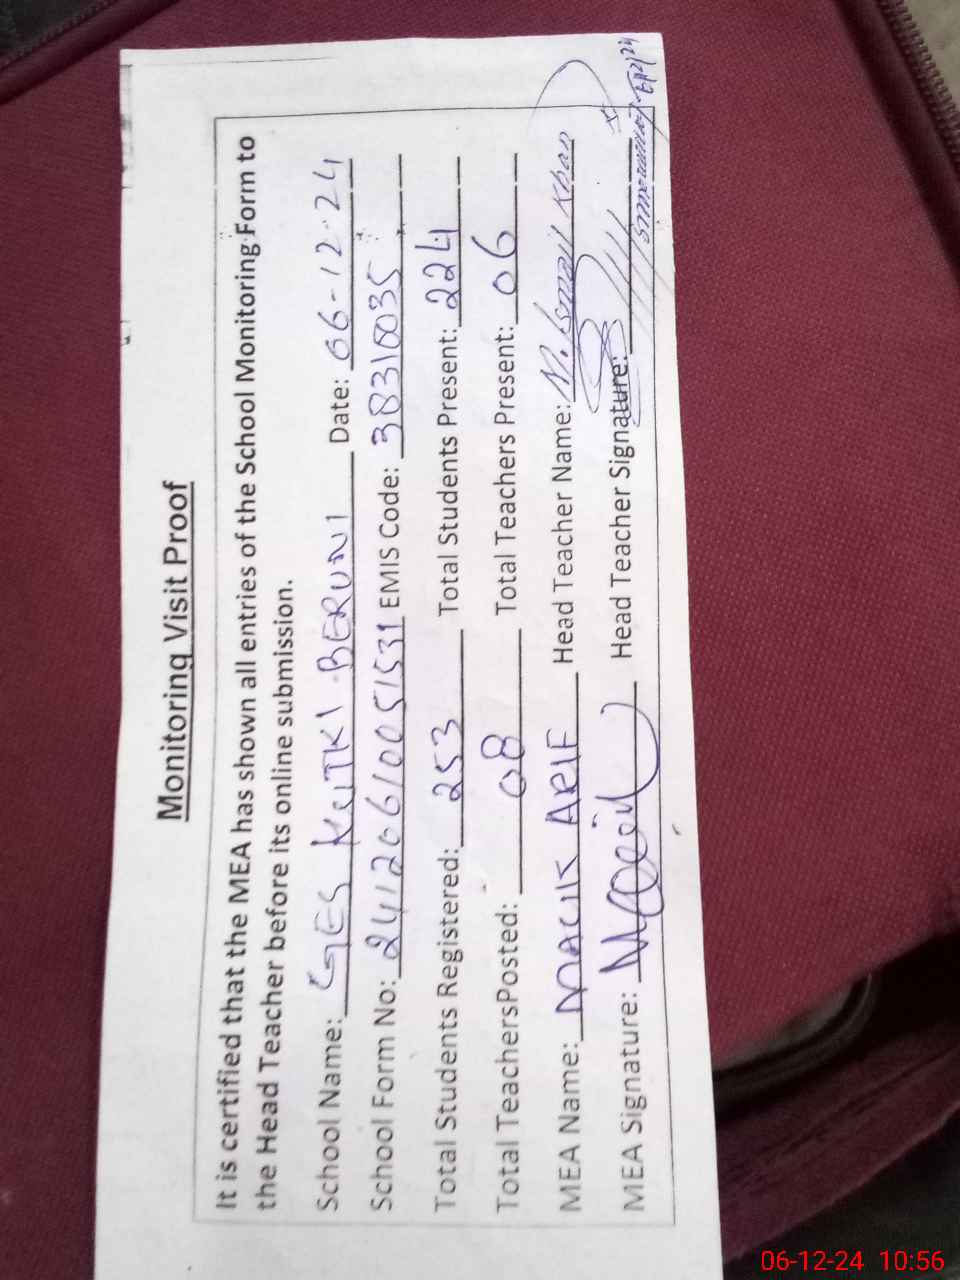 Monitoring Visit Proof
It is certified that the MEA has shown all entries of the School Monitoring Form to
the Head Teacher before its online submission.
School Name: GES KOTKI BERUNI Date: 06-12-24
School Form No: 24120610051531 EMIS Code: 38310035
Total Students Registered: 253 Total Students Present: 224
Total TeachersPosted: 08 Total Teachers Present: 06
MEA Name: MALIK ARIF Head Teacher Name: M. Ismail Khan
MEA Signature: Head Teacher Signature:
6/12/24
06-12-24 10:56